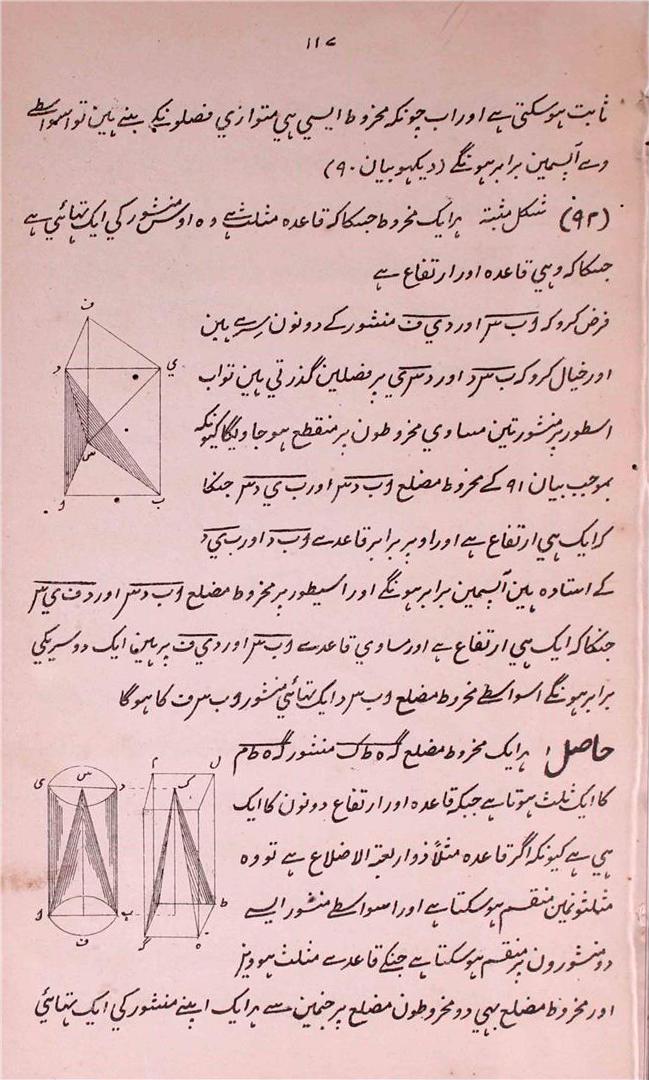 ۱۱۷
ثابت ہوسکتی ہے اور اب چونکہ مخروط ایسی ہی متوازی فصلونکے بنے ہین تو اسواسطے
وے آپسمین برابر ہونگے (دیکہو بیان ۹۰)
(۹۲) شکل مثبتہ ہر ایک مخروط جسکا کہ قاعدہ مثلث ہے وہ اوس منشور کی ایک تہائی ہے
جسکا کہ وہی قاعدہ اور ارتفاع ہے
فرض کرو کہ ا ب س اور د ی ف منشور کے دونون سرے ہین
اور خیال کرو کہ ب س د اور د س ی پر فصلین گذرتی ہین تو اب
اسطور پر منشور تین مساوی مخروطون پر منقطع ہو جاویگا کیونکہ
بموجب بیان ۹۱ کے مخروط مضلع ا ب د س اور ب ی د س جنکا
کہ ایک ہی ارتفاع ہے اور اوپر برابر قاعدے ا ب د اور ب ی د
کے استادہ ہین آپسمین برابر ہونگے اور اسیطور پر مخروط مضلع ا ب د س اور د ف ی س
جنکا کہ ایک ہی ارتفاع ہے اور مساوی قاعدے ا ب س اور د ی ف پر ہین ایک دوسریکی
برابر ہونگے اسواسطے مخروط مضلع ا ب س د ایک تہائی منشور ا ب س ف کا ہوگا
حاصل ۱ ہر ایک مخروط مضلع گ ہ ط ک منشور گ ہ ط م
کا ایک ثلث ہوتا ہے جبکہ قاعدہ اور ارتفاع دونون کا ایک
ہی ہے کیونکہ اگر قاعدہ مثلاً ذو اربعۃ الاضلاع ہے تو وہ
مثلثونمین منقسم ہوسکتا ہے اور اسواسطے منشور ایسے
دو منشورون پر منقسم ہوسکتا ہے جنکے قاعدے مثلث ہووین
اور مخروط مضلع بہی دو مخروطون مضلع پر جنمین سے ہر ایک اپنے منشور کی ایک تہائی
ف
د
ی
س
ا
ب
ی
س
د
ا
ب
ف
م
ل
ک
ط
گ
ہ